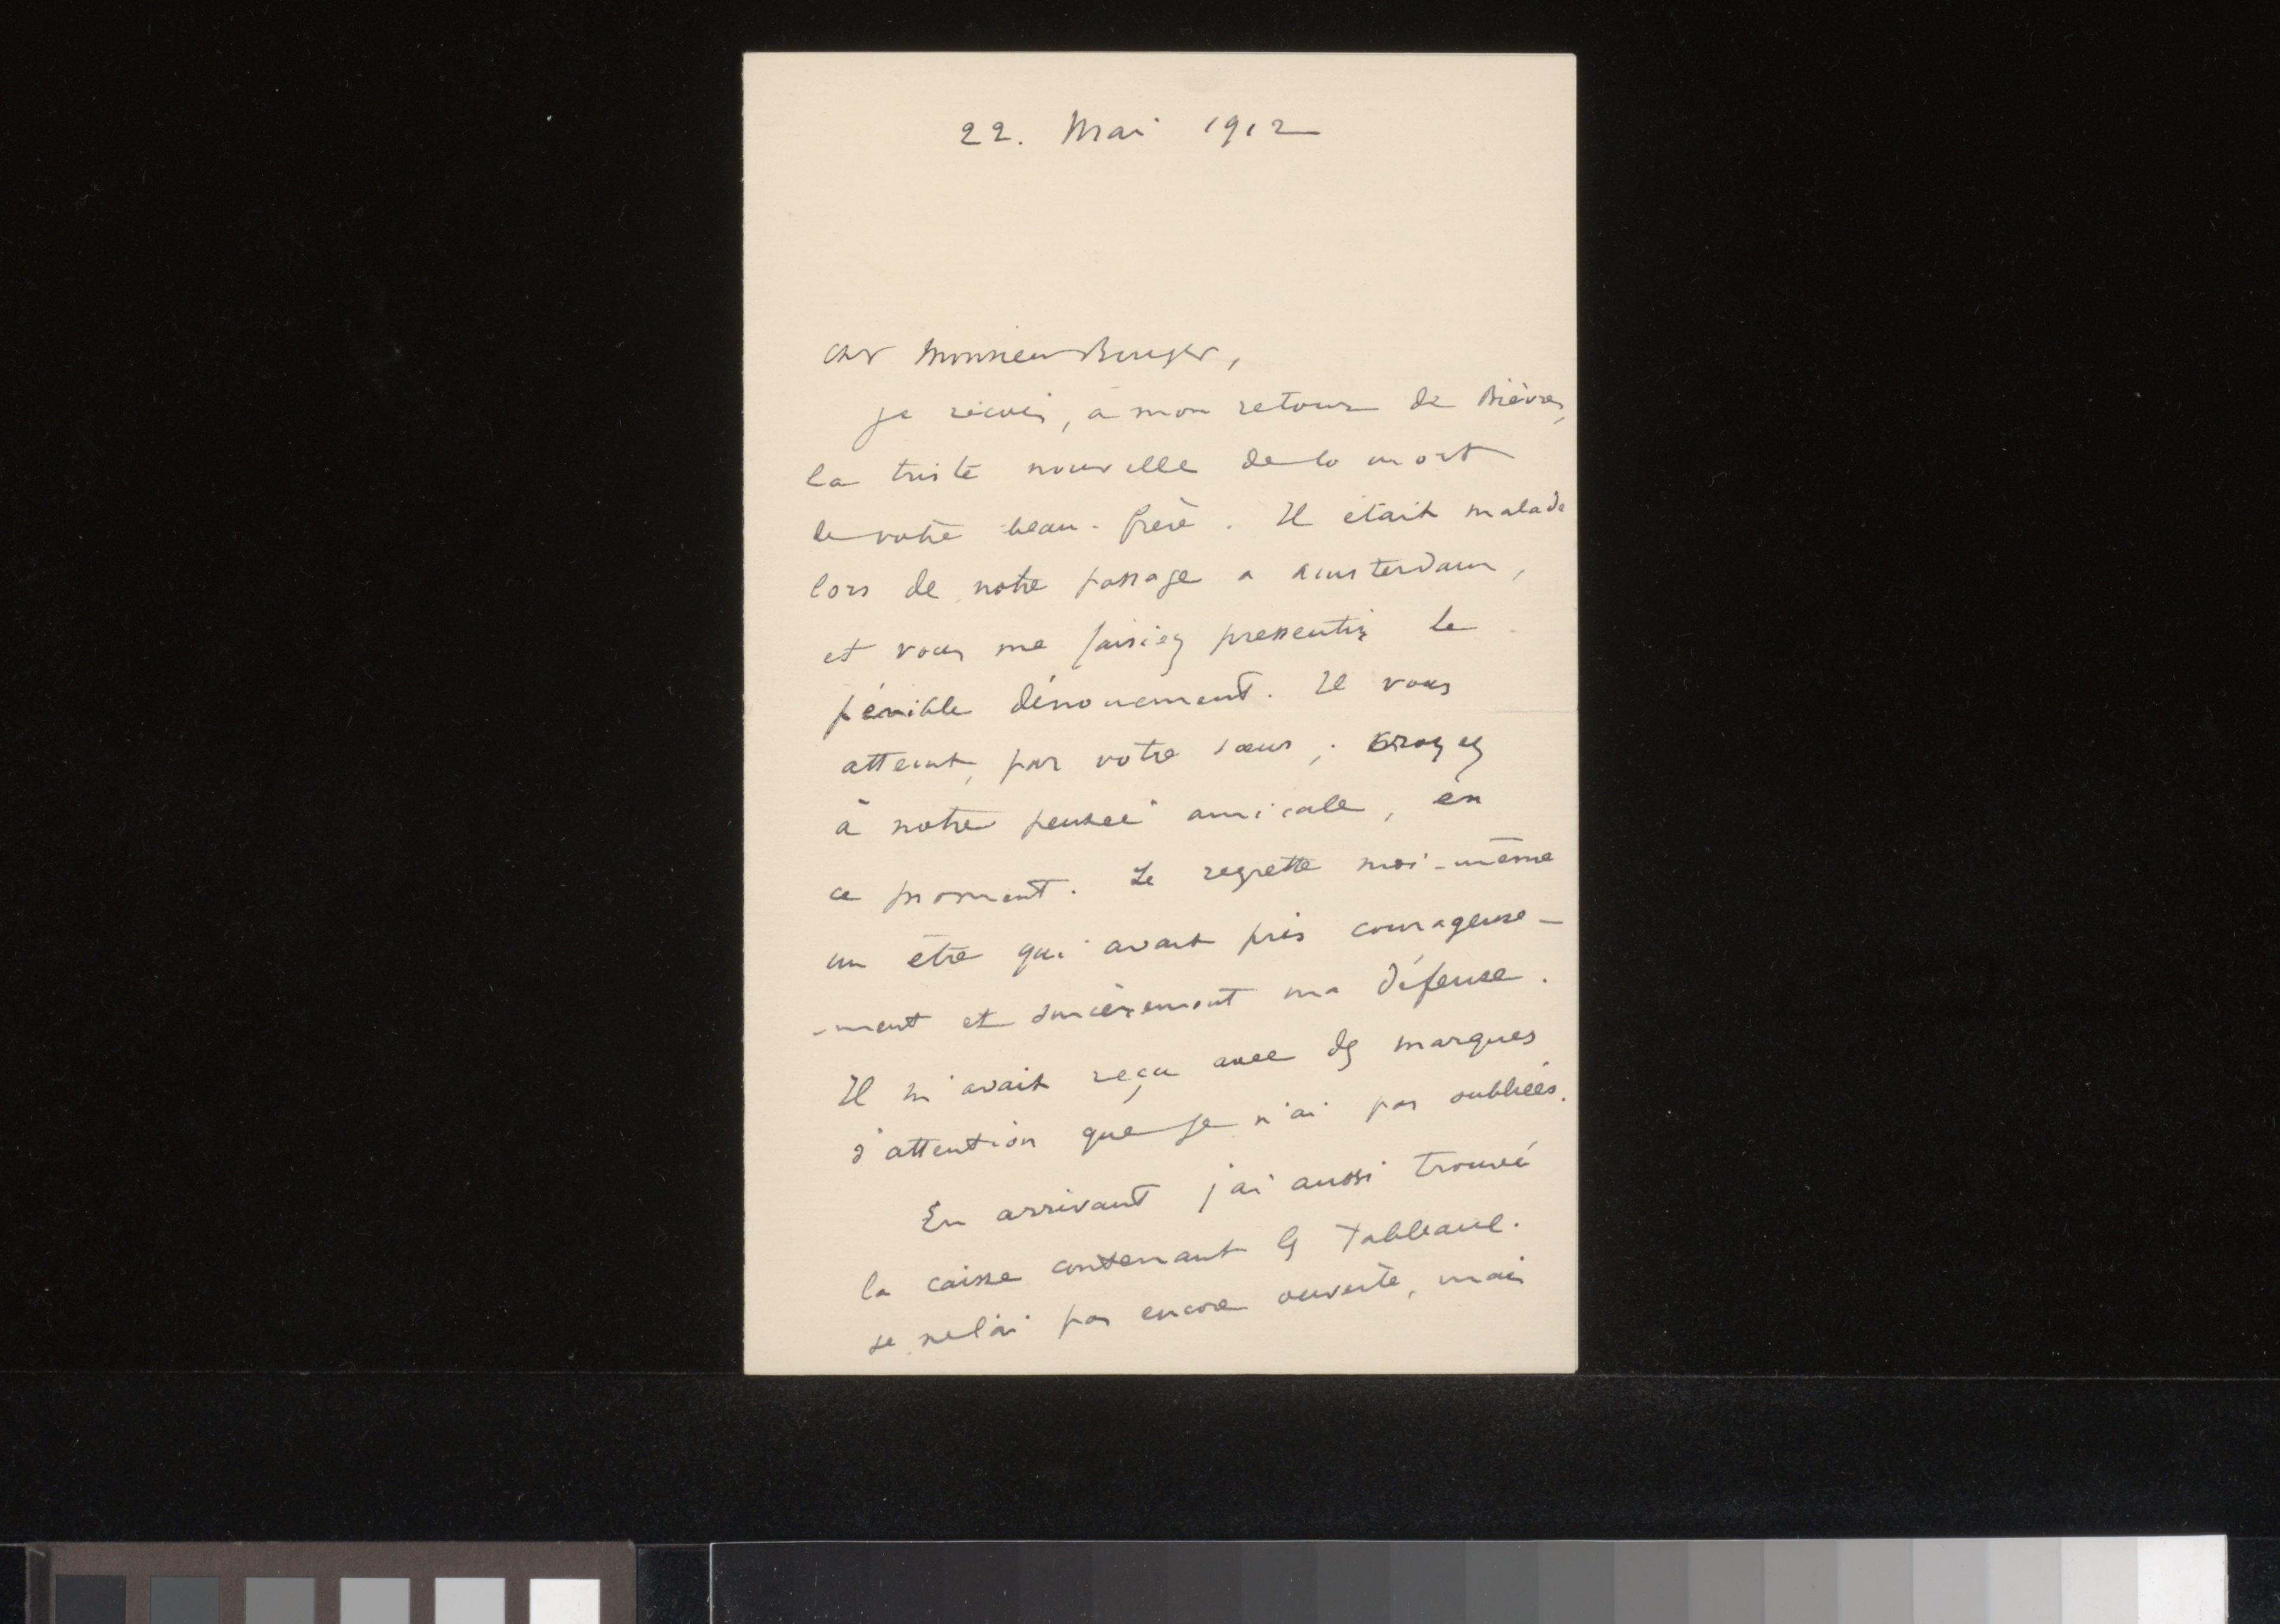 22. Mai 1912
Cher Monsieur Bonger,
je reçois, à mon retour de Bièvres,
la triste nouvelle de la mort
de votre beau-frère. Il était malade
lors de notre passage a Amsterdam,
et vous me faisiez pressentir le
pénible dénouement. Il vous
atteint, par votre sœur; croyez
à notre pensée amicale, en
ce moment. Je regrette moi-même
un être qui avait pris courageuse-
-ment et sincèrement ma défense.
Il m'avait reçu avec des marques
d'attention que je n'ai pas oubliées.
En arrivant j'ai aussi trouvé
la caisse contenant les Tableaux.
je ne l'ai pas encore ouverte, mais